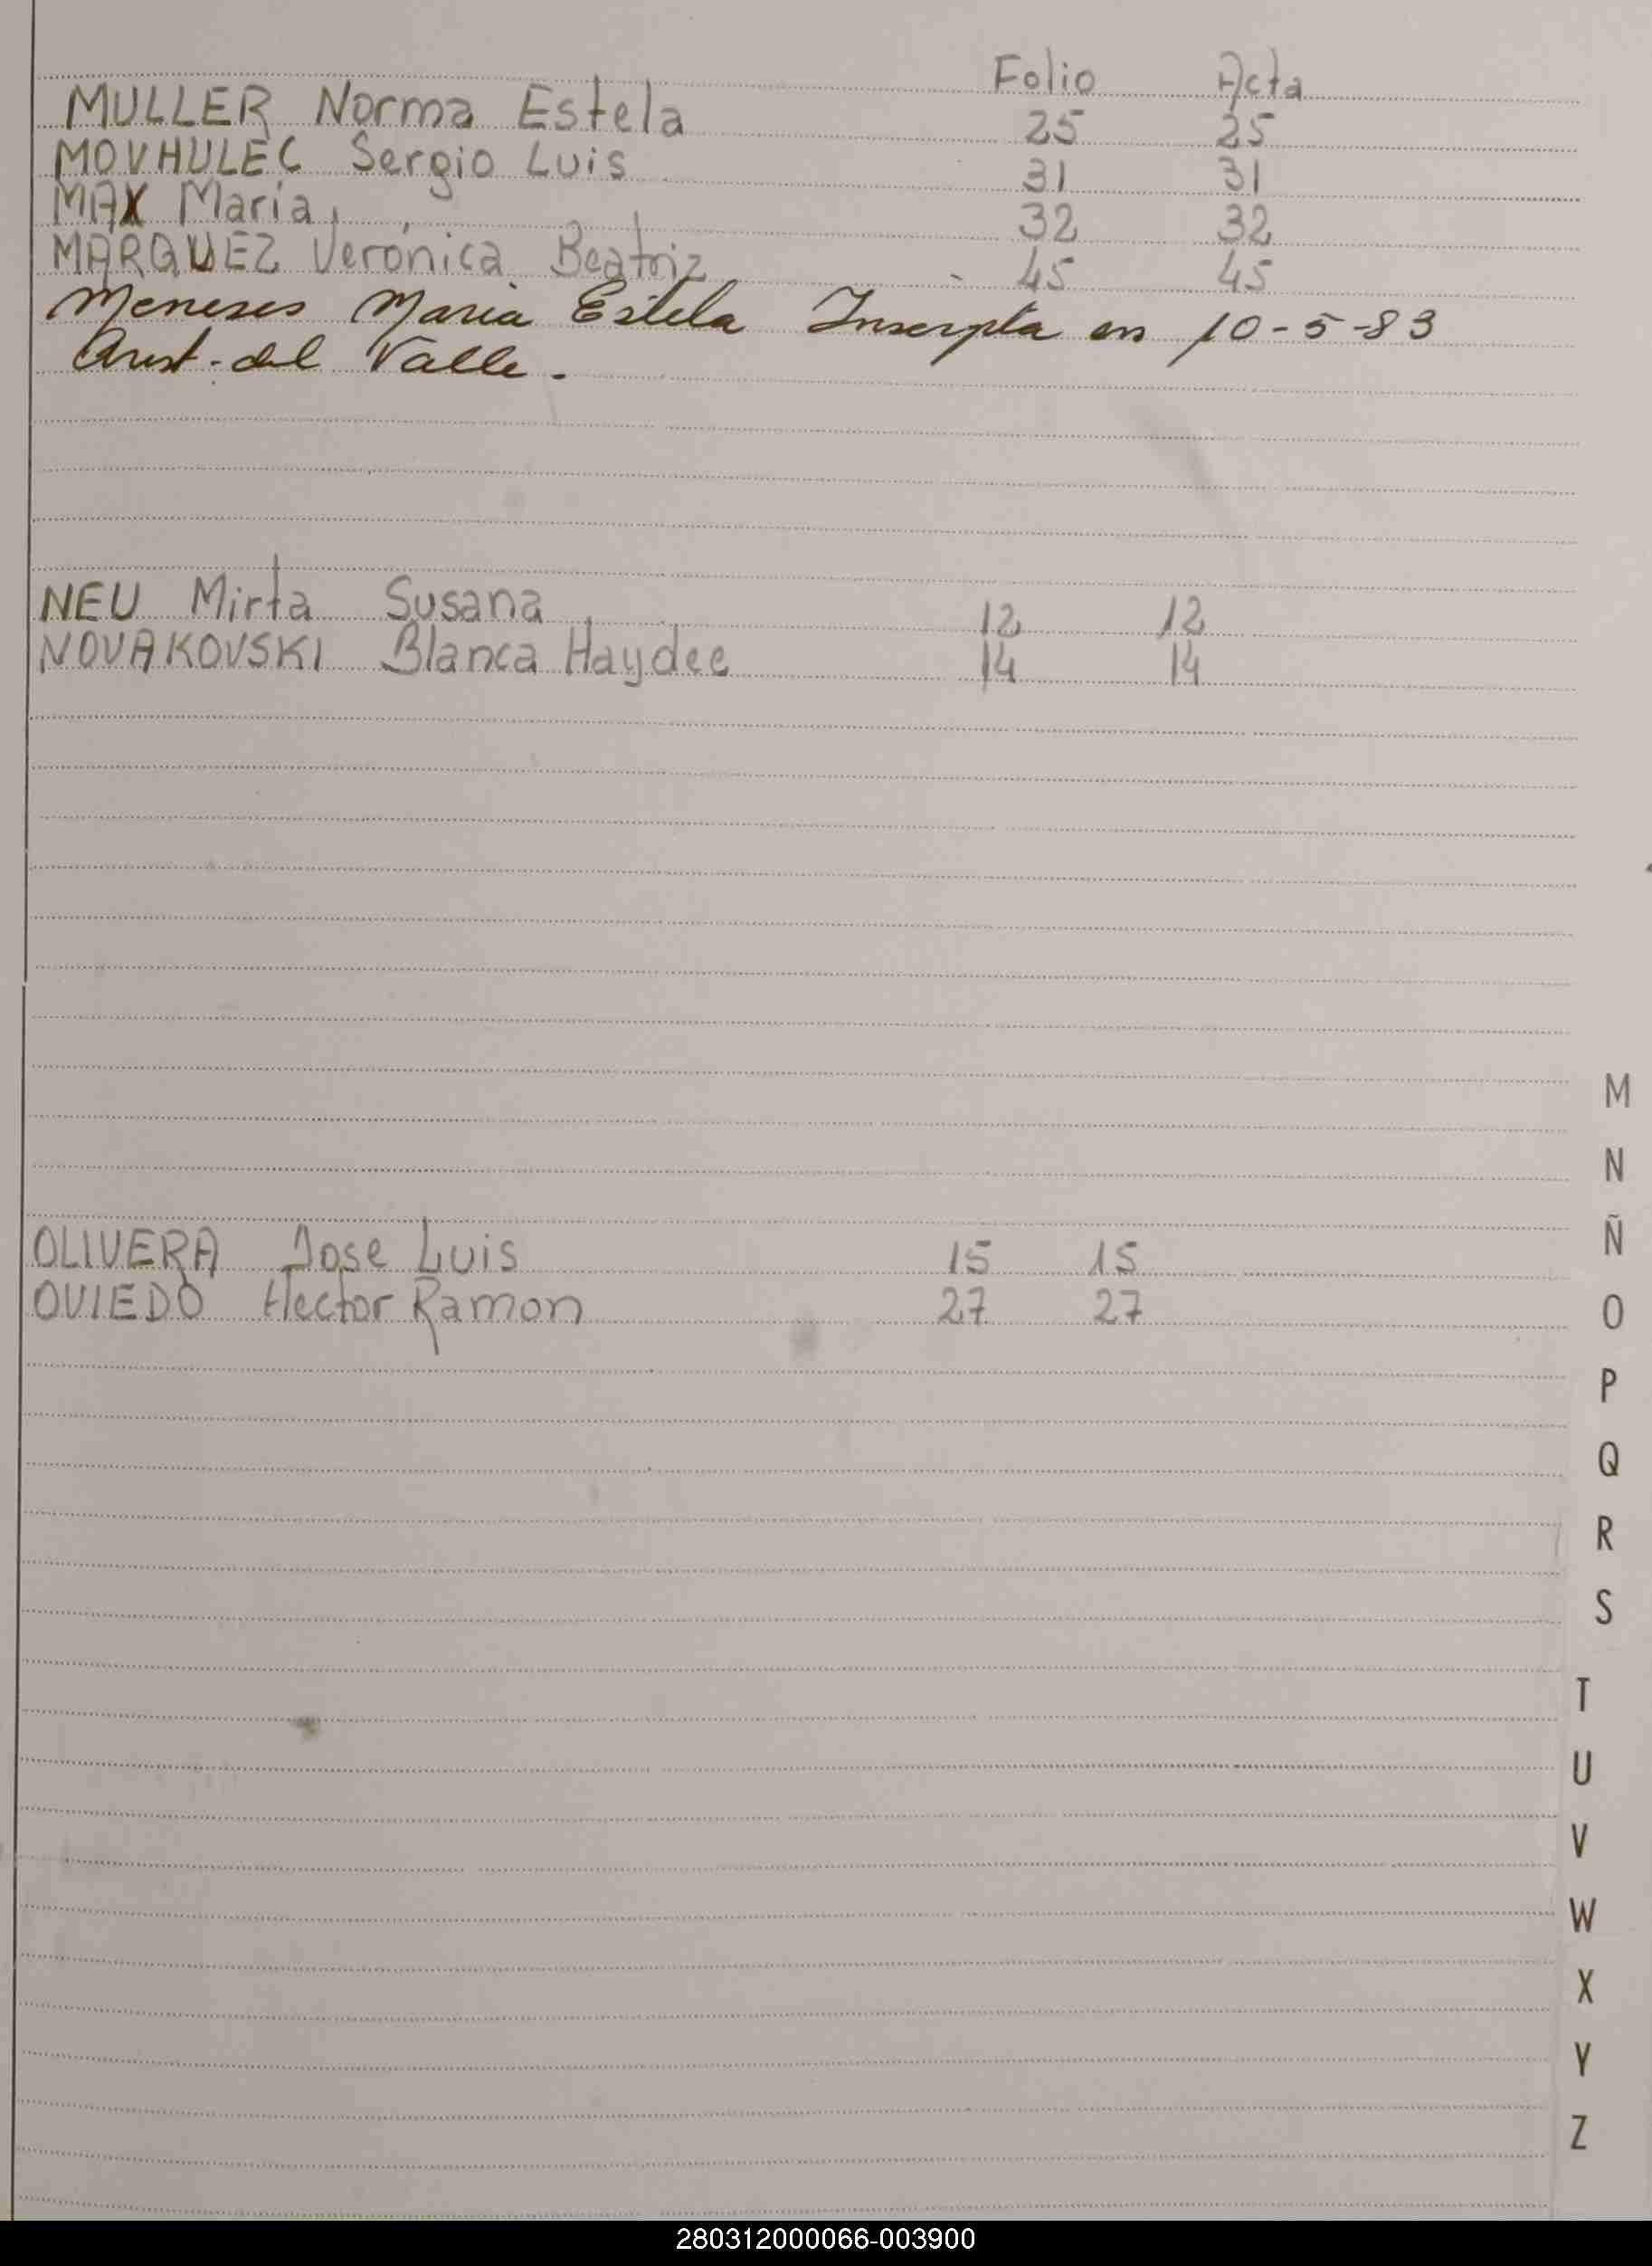 Folio Acta
MULLER Norma Estela 25 25
MOVHULEC Sergio Luis 31 31
MAX Maria 32 32
MARQUEZ Verónica Beatriz 45 45
Meneses Maria Estela Inscripta en 10-5-83
Arist. del Valle.-
NEU Mirta Susana 12 12
NOVAKOVSKI Blanca Haydee 14 14
OLIVERA Jose Luis 15 15
OVIEDO Hector Ramon 27 27
M
N
Ñ
O
P
Q
R
S
T
U
V
W
X
Y
Z
280312000066-003900